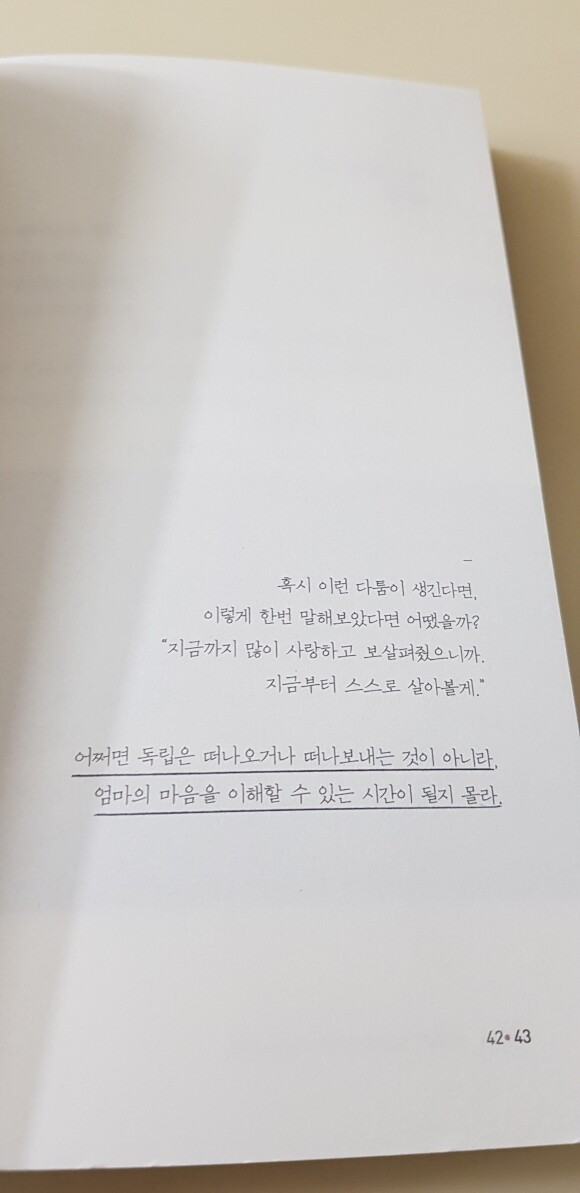 혹시 이런 다툼이 생긴다면,
이렇게 한번 말해보았다면 어땠을까?
"지금까지 많이 사랑하고 보살펴줬으니까.
지금부터 스스로 살아볼게."
어쩌면 독립은 떠나오거나 떠나보내는 것이 아니라,
엄마의 마음을 이해할 수 있는 시간이 될지 몰라.
42•43